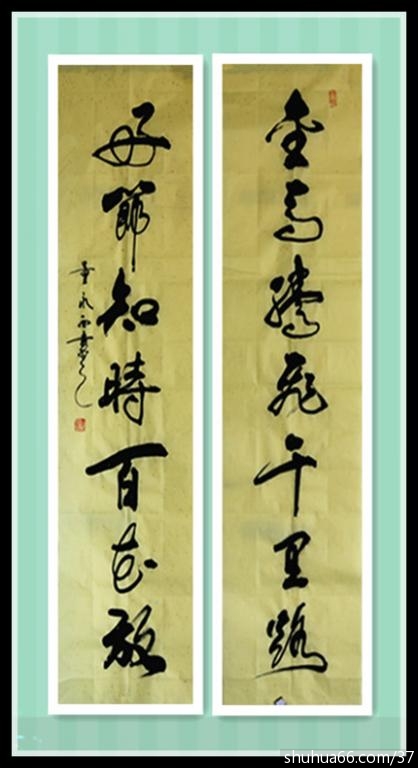 金馬騰飛千里
好節知時百花放
shuhua66.com/37